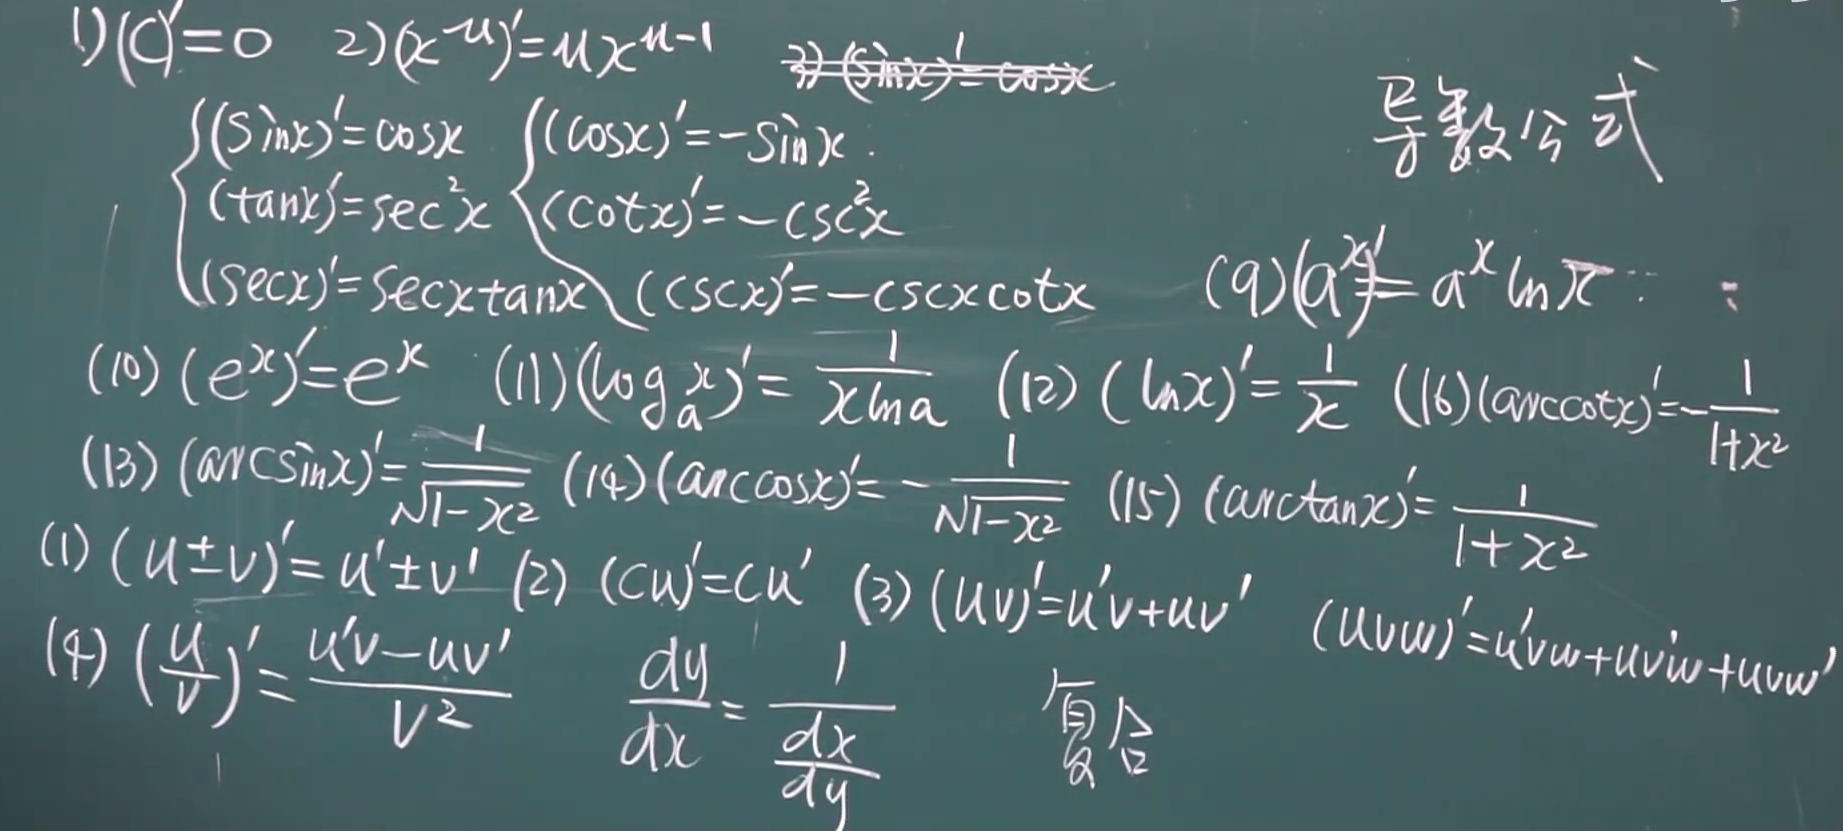 1) (C)'=0 2) (x^μ)'=μx^(μ-1) 3) (sinx)'=cosx
导数公式
(sinx)'=cosx (cosx)'=-sinx
(tanx)'=sec²x (cotx)'=-csc²x
(secx)'=secxtanx (cscx)'=-cscxcotx (9) (a^x)'=a^x lnx
(10) (e^x)'=e^x (11) (log_a x)'=1/(xlna) (12) (lnx)'=1/x (16) (arccotx)'=-1/(1+x²)
(13) (arcsinx)'=1/√(1-x²) (14) (arccosx)'=-1/√(1-x²) (15) (arctanx)'=1/(1+x²)
(1) (u±v)'=u'±v' (2) (cu)'=cu' (3) (uv)'=u'v+uv' (uvw)'=u'vw+uv'w+uvw'
(4) (u/v)'=(u'v-uv')/v² dy/dx=1/(dx/dy) 复合